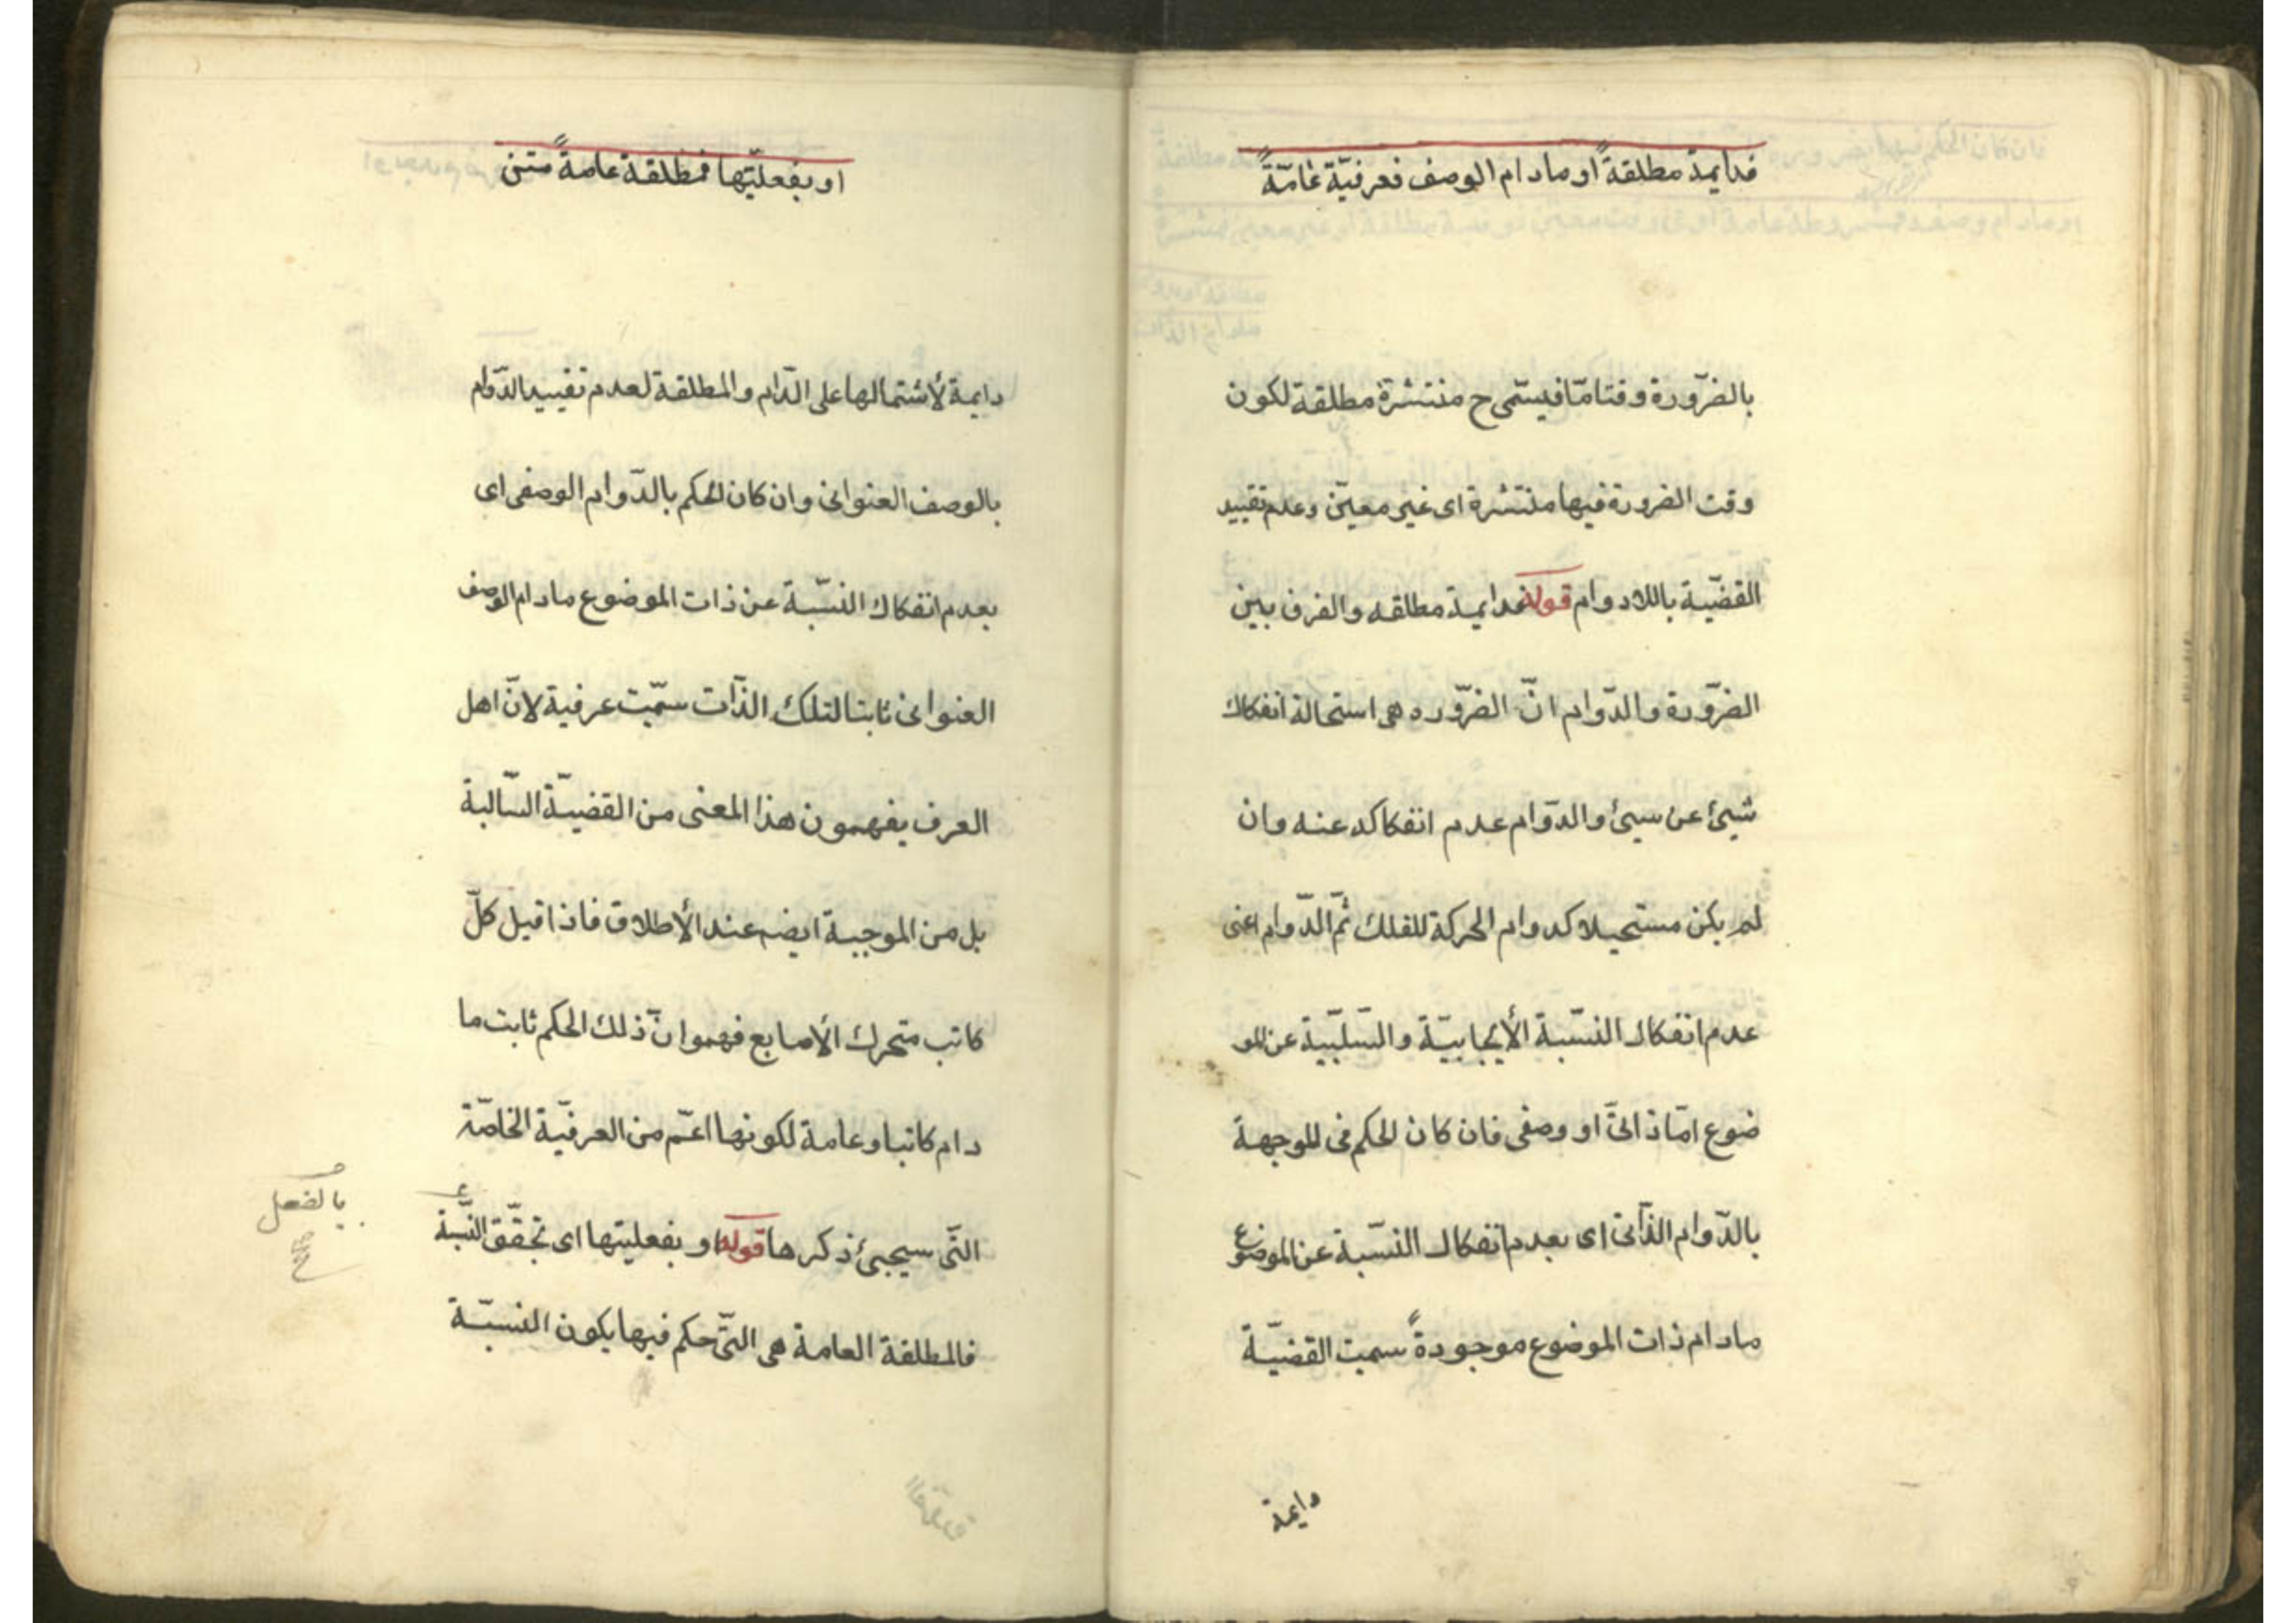 فدایمة مطلقةً او مادام الوصف فعرفیّة عامّةً
بالضّرورة وقتا مّا فیسمّی ح منتشرة مطلقة لکون
وقت الضرورة فیها منتشرة ای غیر معیّن وعدم تقیید
القضّیة باللادوام قوله فدایمة مطلقه والفرق بین
الضّرورة والدّوام انّ الضّروره هی استحالة انفکاك
شیئ عن سیئ والدّوام عدم انفکاکه عنه وان
لم یکن مستحیلا کدوام الحرکة للفلك ثمّ الدّوام اعنی
عدم انفکاك النسّبة الأیجابیّة والسّلبیّة عن المو
ضوع امّا ذاتیّ او وصفی فان کان الحکم فی الموجهة
بالدّوام الذّاتی ای بعدم انفکاك النسّبة عن الموضوع
مادام ذات الموضوع موجودةً سمیت القضیّة
دایمة
او بفعلیّتها فمطلقة عامةً متن
دایمة لأشتمالها علی الدّام والمطلقة لعدم تقیید الدّوام
بالوصف العنوانی وان کان الحکم بالدّوام الوصفی ای
بعدم انفکاك النسّبة عن ذات الموضوع مادام الوصف
العنوانی ثابتا لتلك الذّات سمّیت عرفیة لانّ اهل
العرف یفهمون هذا المعنی من القضیّة السّالبة
بل من الموجبیة ایضم عند الأطلاق فاذا قیل کلّ
کاتب متحرك الأصابع فهموا نّ ذلك الحکم ثابت ما
دام کاتبا وعامة لکونها اعمّ من العرفیّة الخاصّة
التّی سیجیئ ذکرها قوله او بفعلیتها ای تحقّق النسّبة
بالفعل
فالمطلقة العامة هی التّی حکم فیها بکون النسبّة